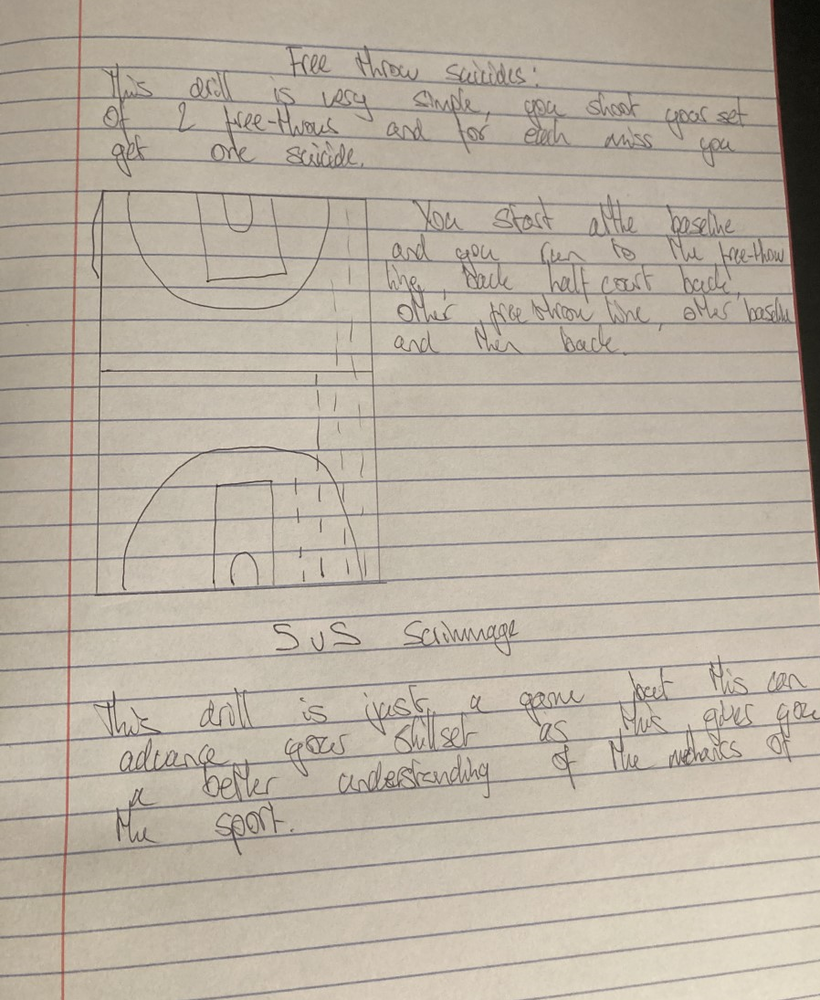 Free throw suicides:
This drill is very simple, you shoot your set
of 2 free-throws and for each miss you
get one suicide.
You start atthe baseline
and you run to the free-throw
line, back half court back,
other free throw line, other baseline
and then back.
5 v 5 Scrimmage
This drill is just a game but this can
advance your skillset as this gives you
a better understanding of the mechanics of
the sport.